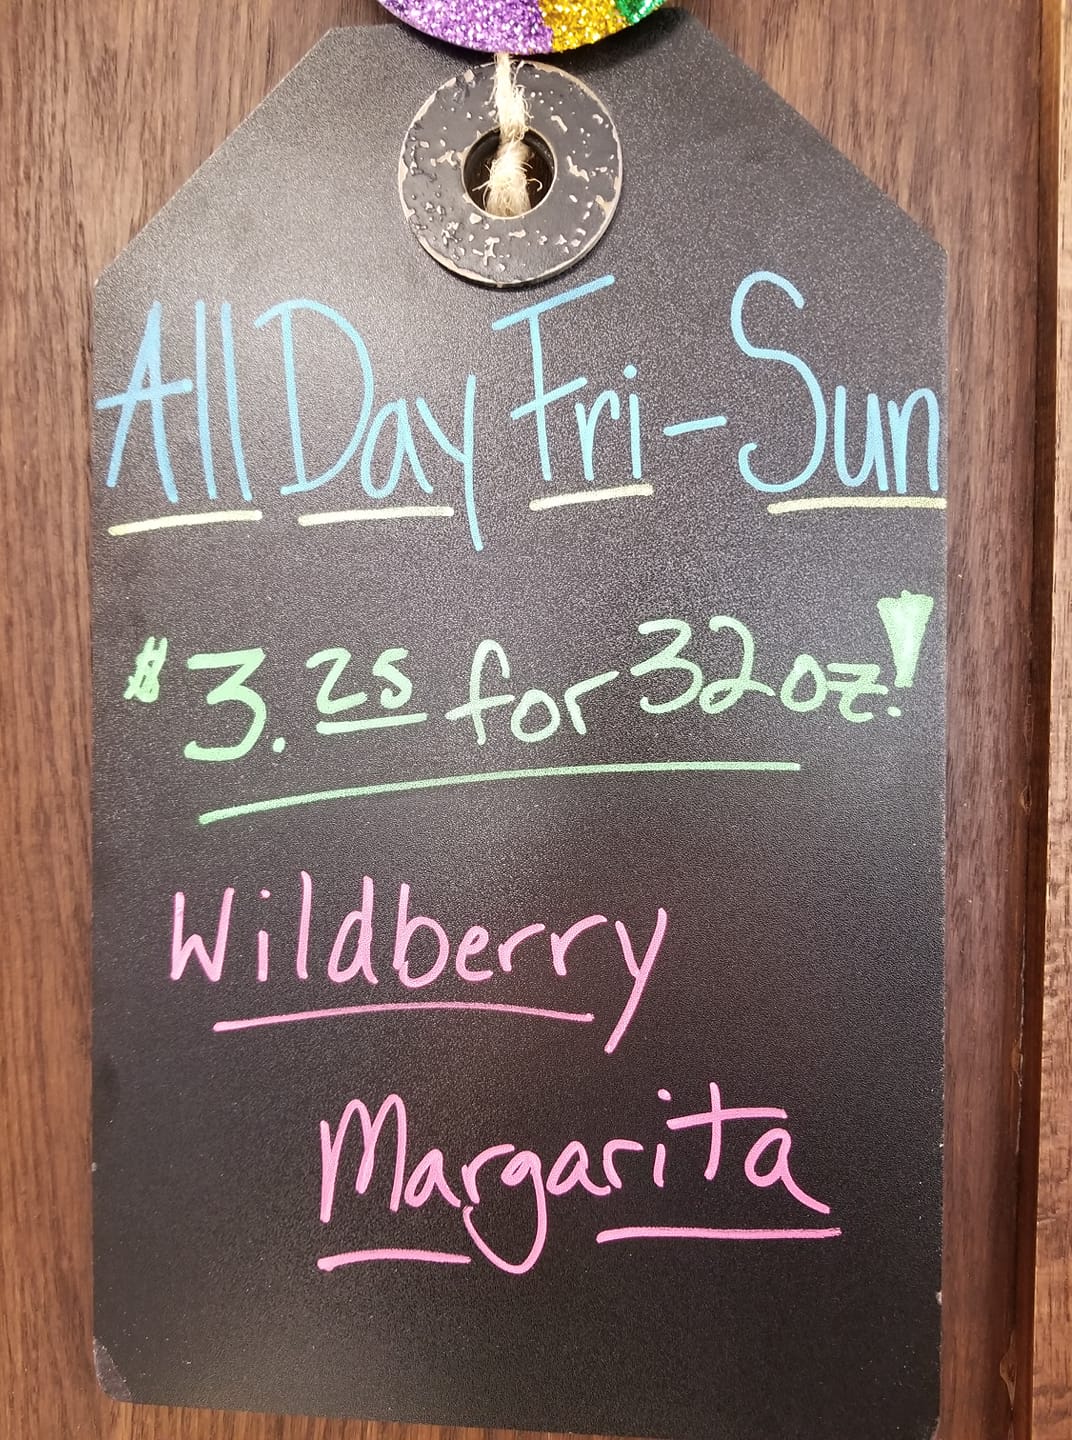 All Day Fri-Sun
$3.25 for 32oz.!
Wildberry
Margarita